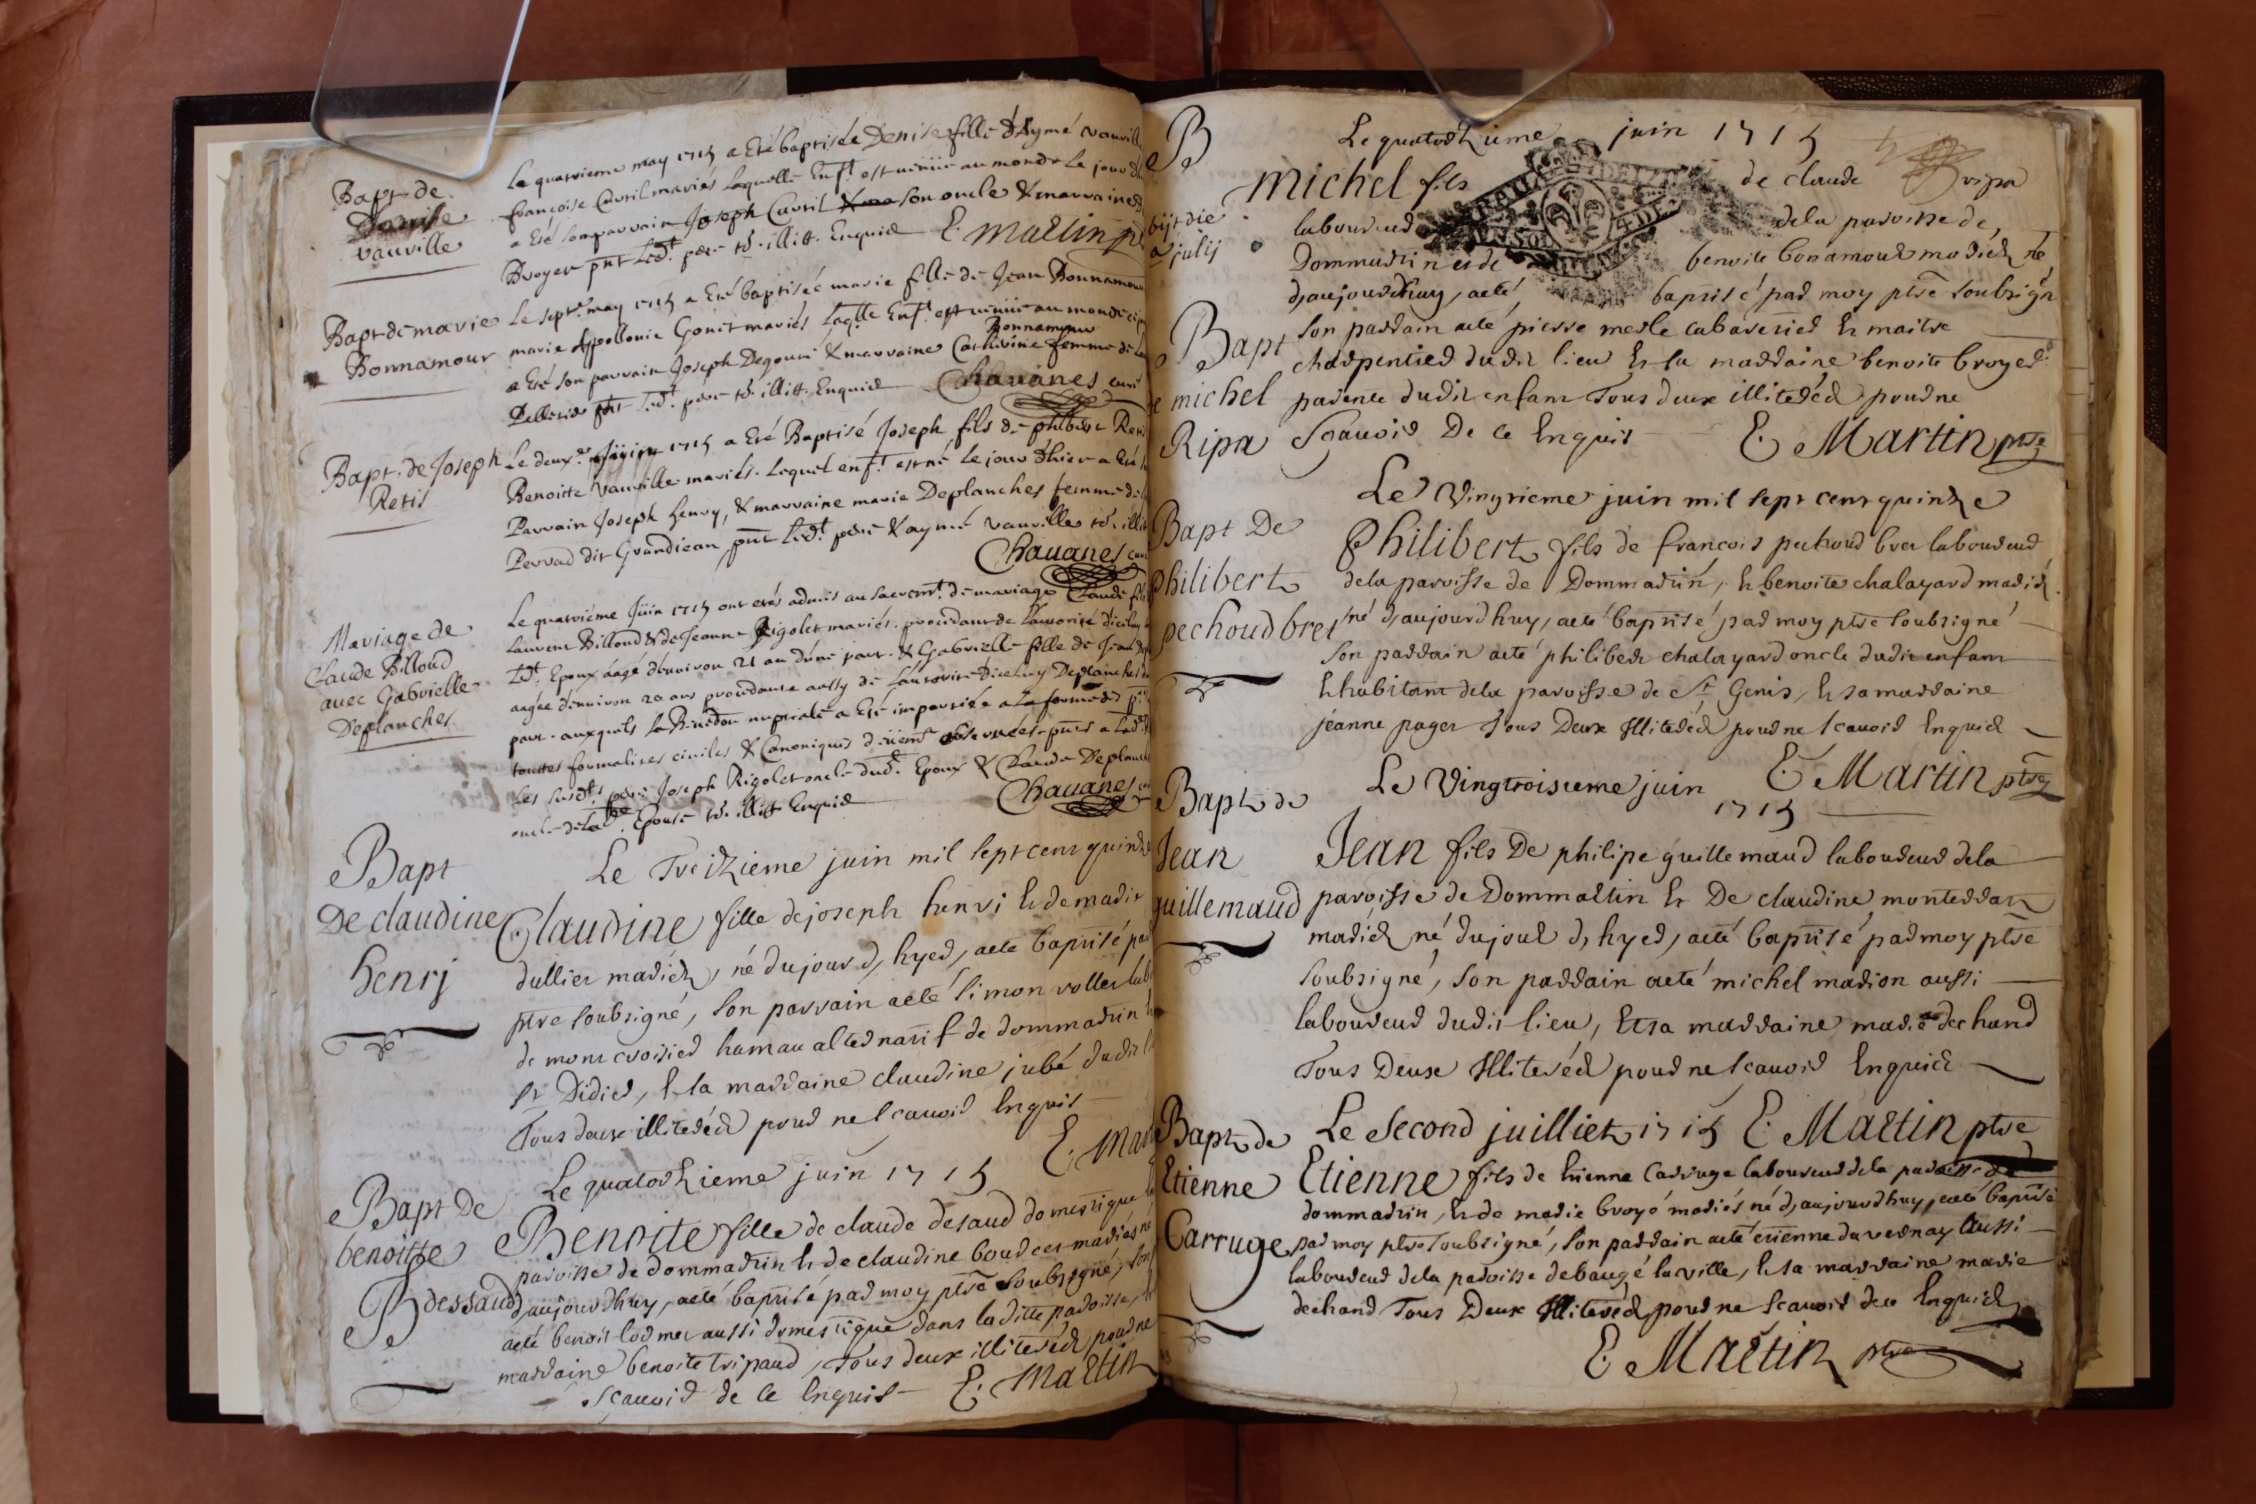 Bapt de
Denise
vauville
Le quatrieme may 1715 a Eté baptisée Denise fille d'Aymé vauvill
françoise Cavril mariés laquelle Enft est venüe au monde le jour
a Eté son parrain Joseph Cavril son oncle & marraine
Broyer pnt led.t pere ts. illitt. Enquis E. Martin
Bapt de marie
Bonnamour
Le sept.e may 1715 a Eté baptisée marie fille de Jean Bonnamour
marie Appollonie Gonet mariés laqlle Enf.t est venüe au monde
Bonnamour
a Eté son parrain Joseph Degouri & marraine Catherine femme de
Pelletier pnt led.t pere ts. illitt. Enquis Chavanes curé
Bapt. de Joseph
Retis
Le deux.e juin 1715 a Eté Baptisé Joseph fils de philbert Retis
Benoitte vauville mariés. Lequel enf.t est né le jour d'hier a Eté
Parrain Joseph henry, & marraine marie Deplanches femme de
Perrad dit Grandjean pnt led.t pere & aymé vauville ts. illitt
Chavanes curé
Mariage de
Claude Billoud
avec Gabrielle
Deplanches
Le quatrieme Juin 1715 ont etés admis au sacrem.t de mariage Claude fils
laurent Billoud & de Jeanne Rigolet mariés. procedant de l'autorité d'iceluy
led.t Epoux âagé d'environ 21 an d'une part. & Gabrielle fille de Jean
aagée d'environ 20 ans procedante aussy de l'autorité d'iceluy Deplanches
part. auxquels la Bénédon nuptiale a Eté impartie a la forme des
touttes formalites civiles & Canoniques düem.t observées. pnts a lad.
Les susd.ts peres Joseph Rigolet oncle dud.t Epoux & Claude Deplanches
oncle de lad.e Epouse ts. illitt Enquis Chavanes
Bapt
De claudine
henrj
Le Treiziéme juin mil sept cent quinze
Claudine fille de joseph henri et de marie
dullier mariéz, né du jour d,hyer, aeté baptisé par
ptre soubsigné, son parrain aeté simon vollet lab
de mont croisier hamau alternatif de dommartin
st Didier, et la marraine claudine jubé dudit
Tous deux illiteréz pour ne scavoir Enquis
E. Mar
Bapt De
benoitte
dessaud
Le quatorzieme juin 1715
Benoite fille de claude desaud domestique
paroisse de dommartin et de claudine bourcet mariés né
d,aujourdhuy, aeté baptisé par moy ptre soubsigné, son
aeté benoit lormet aussi domestique dans laditte paroisse,
marraine benoite tripaud, Tous deux illiteréz pour ne
scavoir de ce Enquis E. Martin
Le quatorzieme juin 1715
michel fils de claude ripa
laboureur dela paroisse de,
Dommartin et de benoite bonamour mariéz né
d,aujourdhuy, aeté, baptisé par moy ptre soubsigné
julij
Bapt
de michel
Ripa
son parrain aeté pierre merle cabaretier et maitre
charpentier dudit lieu et la marraine benoite broyer
parente dudit enfant Tous deux illiteréz pour ne
Scavoir De ce Enquis E. Martin ptre
Bapt De
philibert
pechoud bret
Le Vingtieme juin mil sept cent quinze
Philibert fils de francois pechoud bret laboureur
dela paroisse de Dommartin, et benoite chalayard mariéz
né d,aujourdhuy, aeté baptisé par moy ptre soubsigné
son parrain aeté philibert chalayard oncle dudit enfant
et habitant dela paroisse de St Genis, et sa marraine
jeanne paget Tous Deux Illiteréz pour ne scavoir Enquis
E. Martin ptre
Bapt de
Jean
guillemaud
Le Vingtroisieme juin
1715
Jean fils De philipe guillemaud laboureur dela
paroisse de Dommartin et De claudine monterrat
mariéz né du jour d,hyer, aeté baptisé par moy ptre
soubsigné, son parrain aeté michel marion aussi
laboureur dudit lieu, et sa marraine marie dechand
Tous Deux Illiteréz pour ne scavoir Enquis
Bapt de
Etienne
Carruge
Le Second juilliet 1715 E. Martin ptre
Etienne fils de etienne Carruge laboureur dela paroisse de
dommartin, et de marie broyé mariés né d,aujourdhuy, aeté baptisé
par moy ptre soubsigné, son parrain aeté etienne duvernay Aussi
laboureur dela paroisse de baugé la ville, et sa marraine marie
dechand Tous Deux Illiteréz pour ne scavoir de ce Enquis
E. Martin ptre